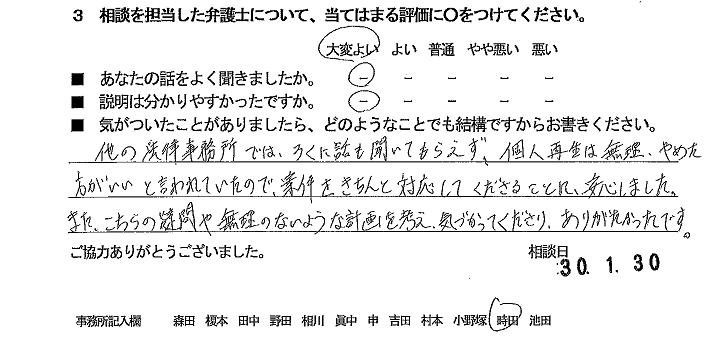 3 相談を担当した弁護士について、当てはまる評価に○をつけてください。
大変よい よい 普通 やや悪い 悪い
■ あなたの話をよく聞きましたか。 － － － － －
■ 説明は分かりやすかったですか。 － － － － －
■ 気がついたことがありましたら、どのようなことでも結構ですからお書きください。
他の法律事務所では、ろくに話も聞いてもらえず、個人再生は無理、やめた
方がいいと言われていたので、案件をきちんと対応してくださることに、安心しました。
また、こちらの疑問や無理のないような計画を考え、気づかってくださり、ありがたかったです。
ご協力ありがとうございました。 相談日
30. 1. 30
事務所記入欄 森田 榎本 田中 野田 相川 眞中 申 吉田 村本 小野塚 時田 池田